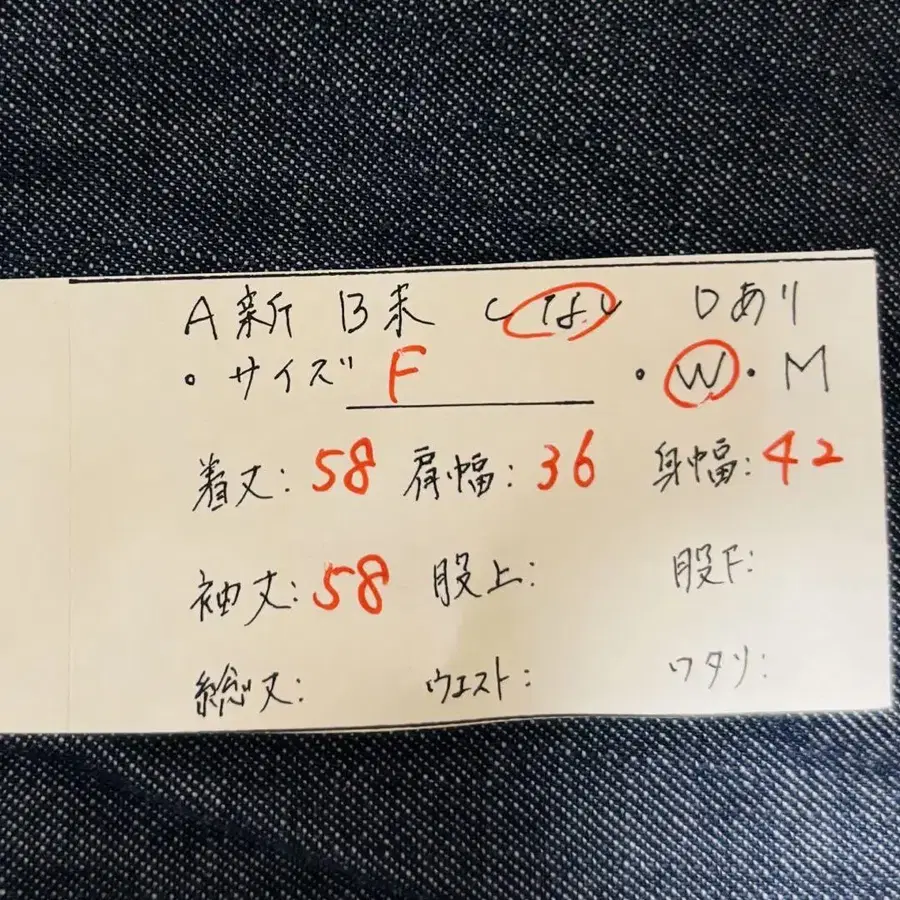 A新 B未 Cなし Dあり
・サイズ F ・W・M
着丈:58 肩幅:36 身幅:42
袖丈:58 股上: 股下:
総丈: ウエスト: ワタリ: